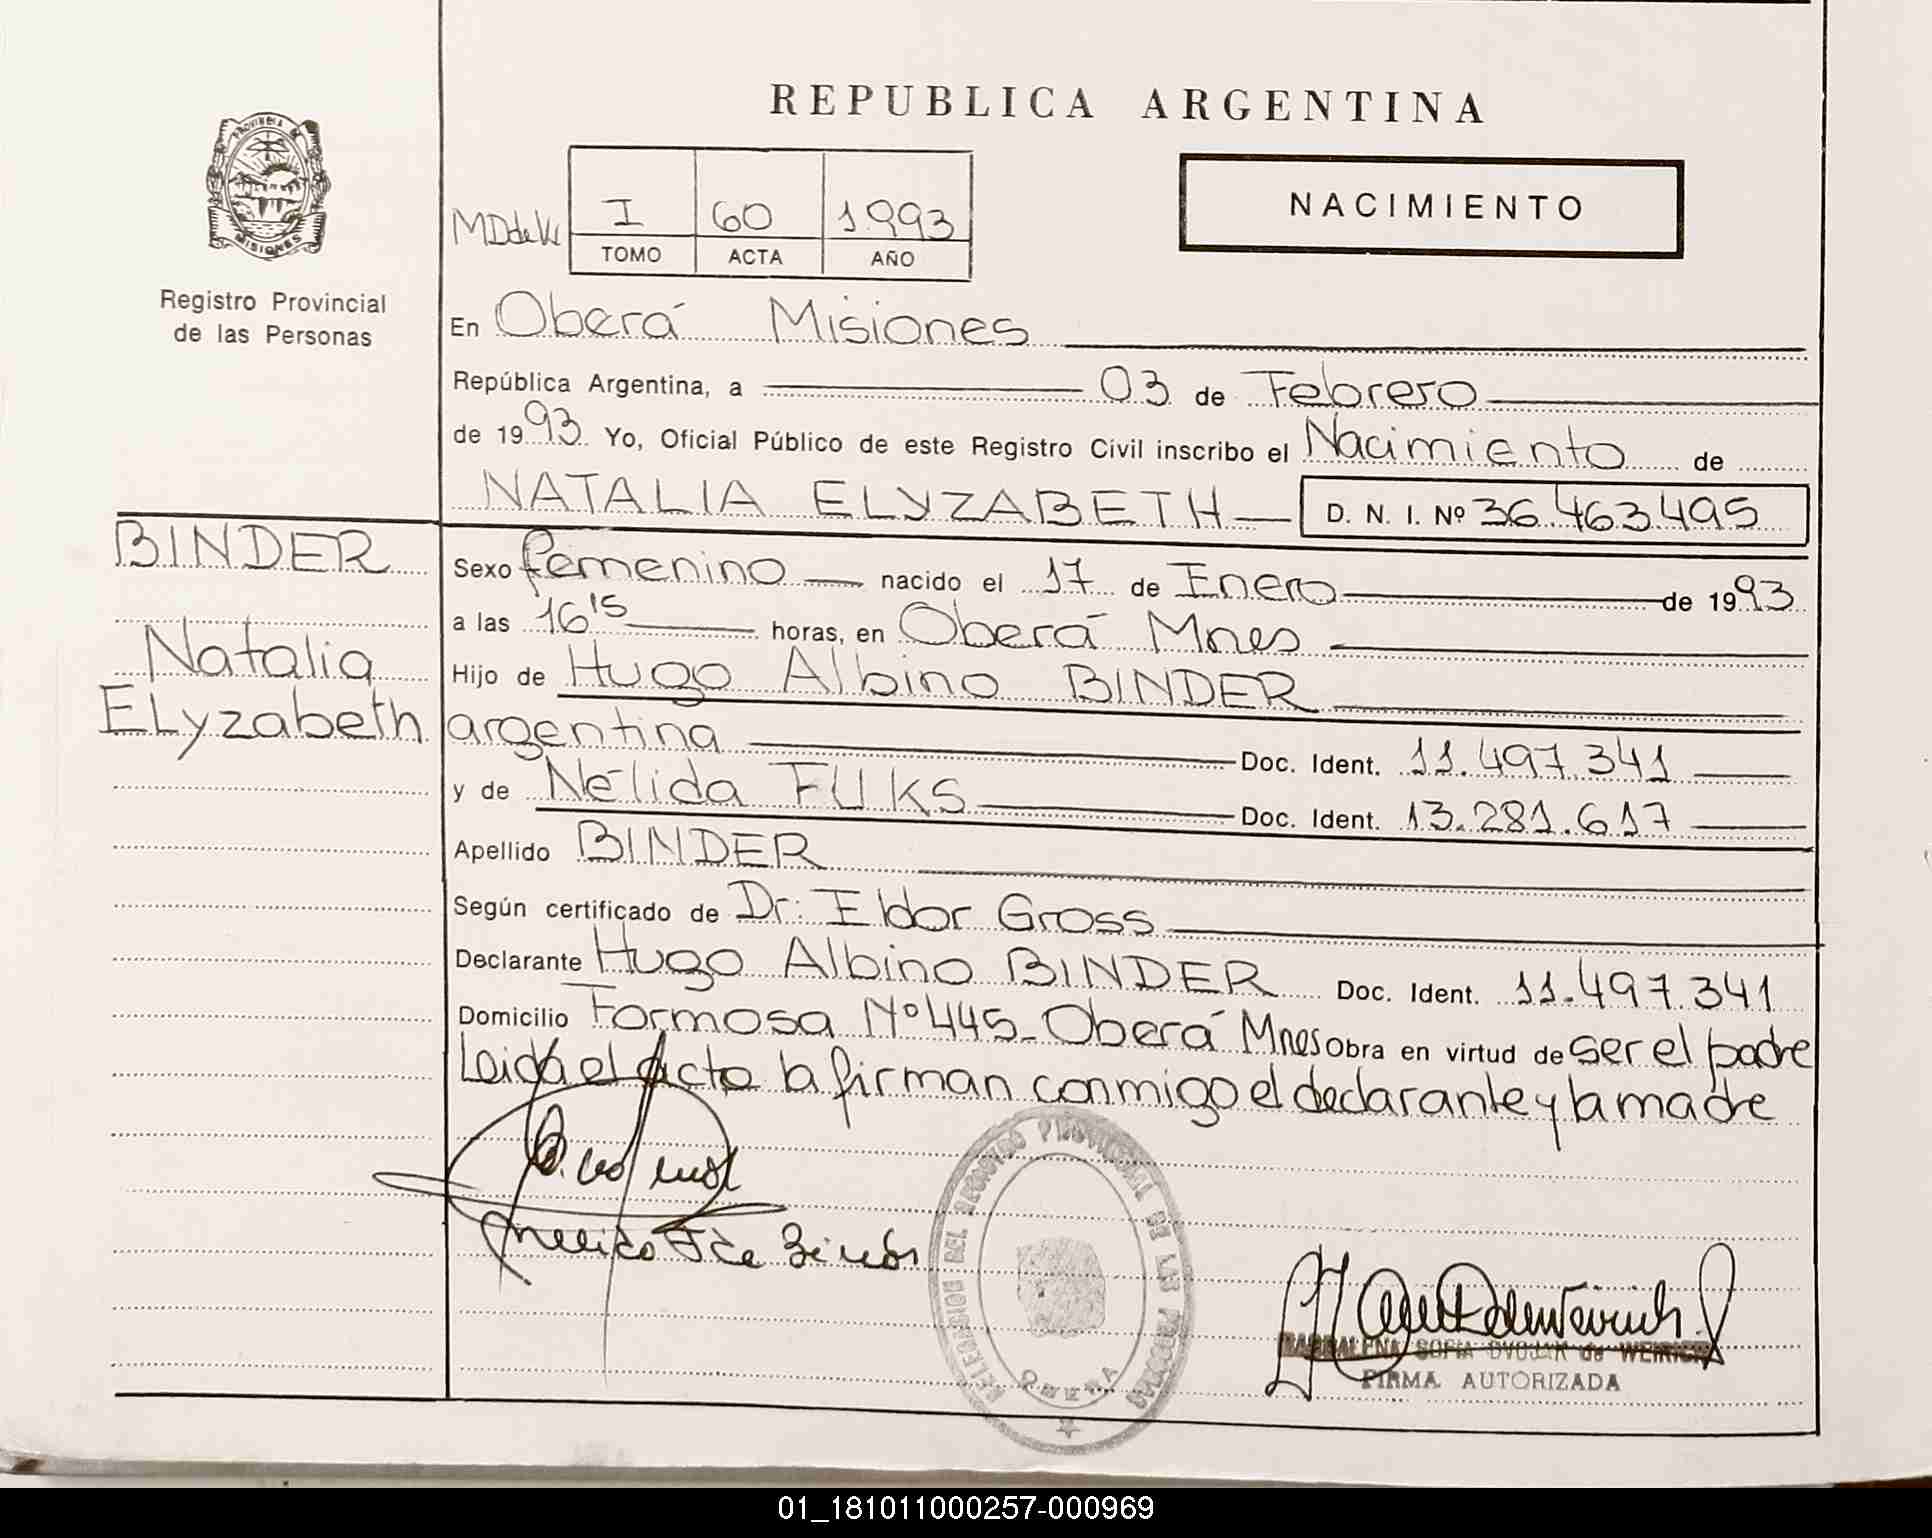 REPUBLICA ARGENTINA
PROVINCIA DE
MISIONES
Registro Provincial
de las Personas
I 60 1993
TOMO ACTA AÑO
NACIMIENTO
En Oberá Misiones
República Argentina, a 03 de Febrero
de 1993 Yo, Oficial Público de este Registro Civil inscribo el Nacimiento de
NATALIA ELYZABETH D. N. I. Nº 36.463.495
BINDER
Natalia
ELyzabeth
Sexo femenino nacido el 17 de Enero de 1993
a las 16'15 horas, en Oberá Mnes
Hijo de Hugo Albino BINDER
argentina Doc. Ident. 11.497.341
y de Nélida FUKS Doc. Ident. 13.281.617
Apellido BINDER
Según certificado de Dr: Eldor Gross
Declarante Hugo Albino BINDER Doc. Ident. 11.497.341
Domicilio Formosa Nº 445- Oberá Mnes Obra en virtud de ser el padre
Leida el acta la firman conmigo el declarante y la madre
DELEGACION DEL REGISTRO PROVINCIAL DE LAS PERSONAS
OBERA
SOFIA DVOJAK de WEIRICH
FIRMA AUTORIZADA
01_181011000257-000969